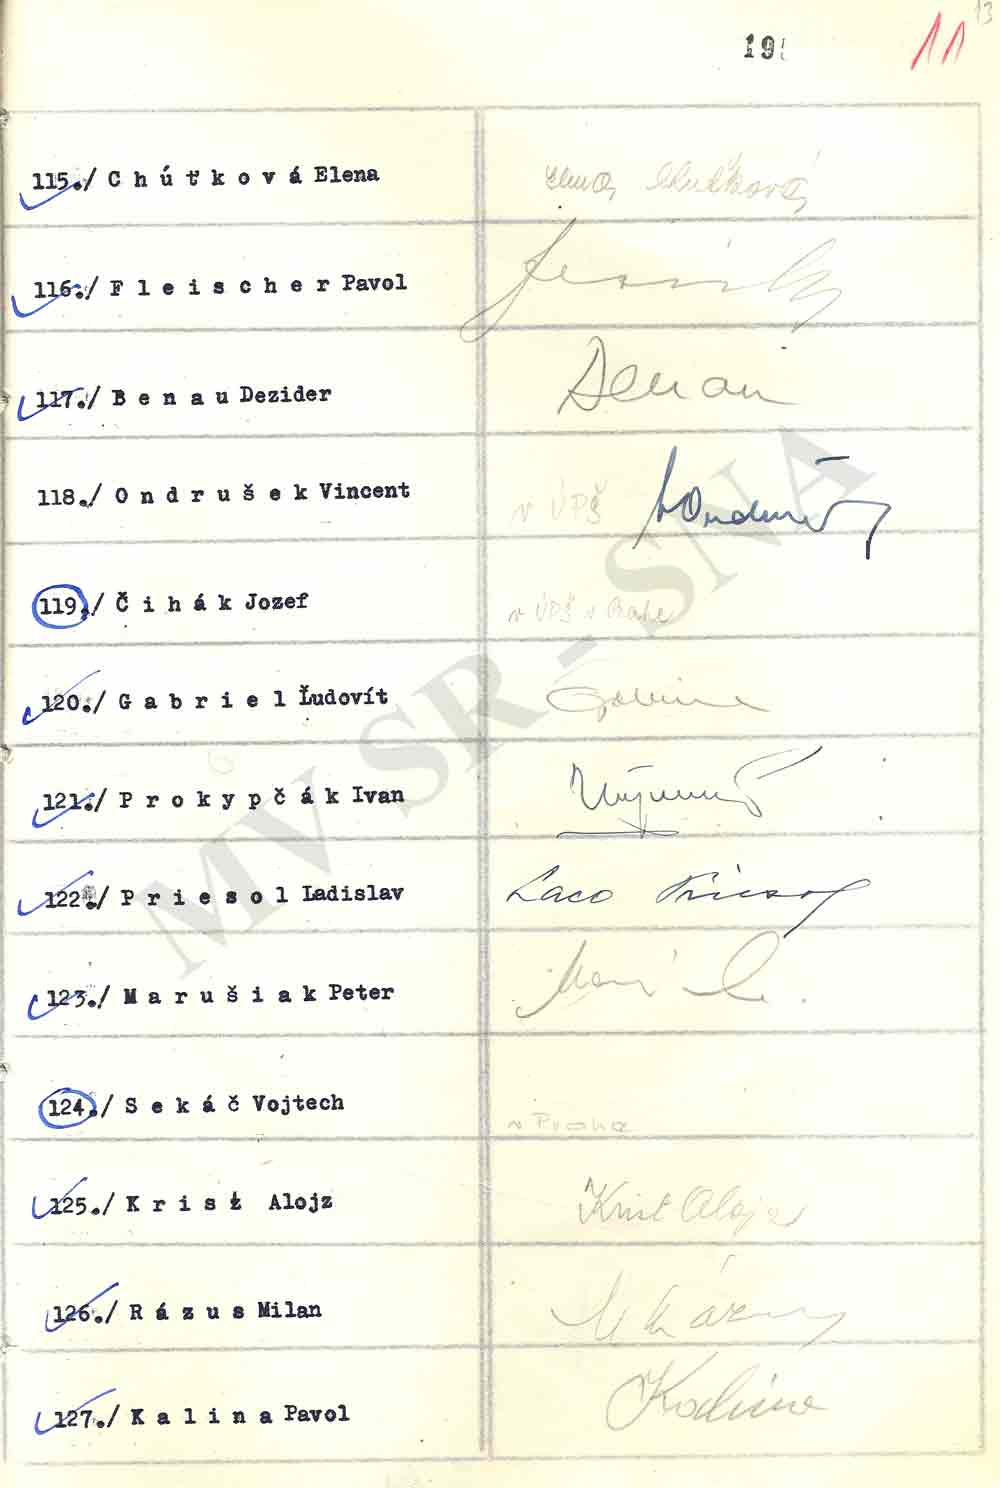 13
191
11
115./ C h ú ť k o v á Elena
116./ F l e i s c h e r Pavol
117./ B e n a u Dezider
118./ O n d r u š e k Vincent v ÚPŠ
119./ Č i h á k Jozef v ÚPŠ v Prahe
120./ G a b r i e l Ľudovít
121./ P r o k y p č á k Ivan
122./ P r i e s o l Ladislav Laco Priesol
123./ M a r u š i a k Peter
124./ S e k á č Vojtech v Prahe
125./ K r i s t Alojz Krist Alojz
126./ R á z u s Milan M Rázus
127./ K a l i n a Pavol Kalina
MV SR - SNA